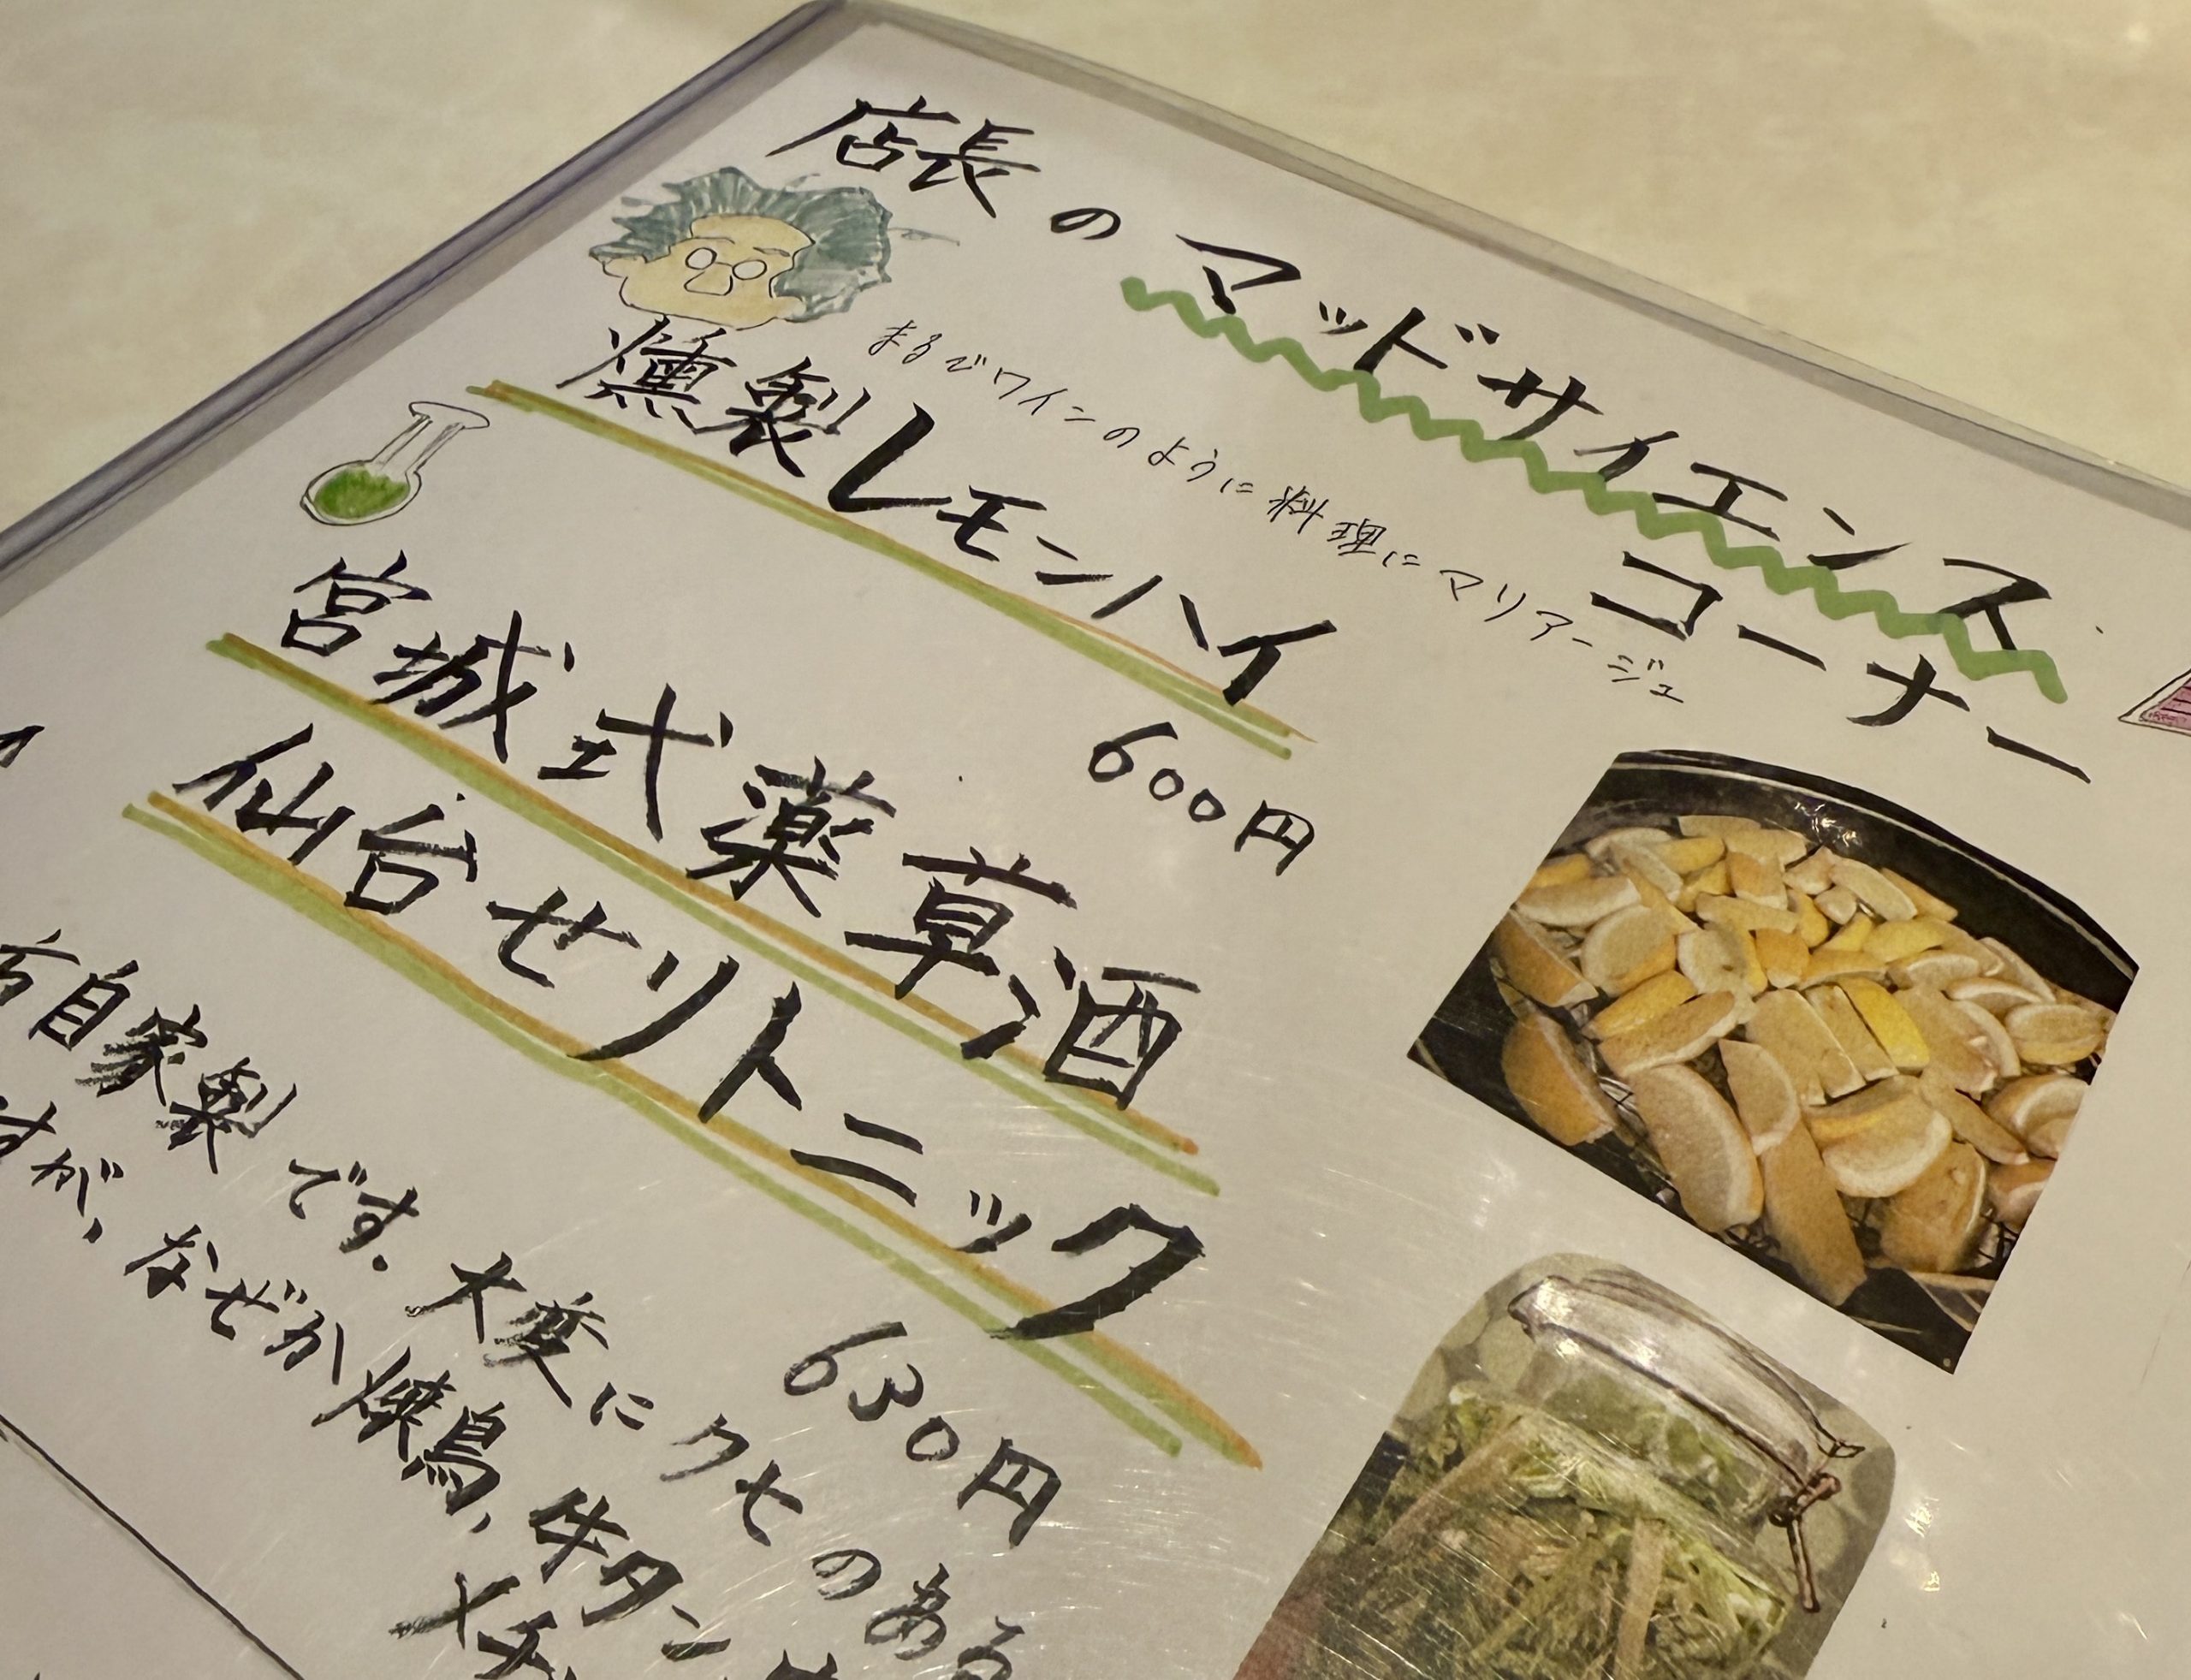 店長のマッドサイエンス
コーナー
まるでワインのように料理にマリアージュ
燻製レモンハイ
600円
宮城式薬草酒
仙台せりトニック
630円
自家製です。大変にクセのある
すが、なぜか焼鳥、牛タン